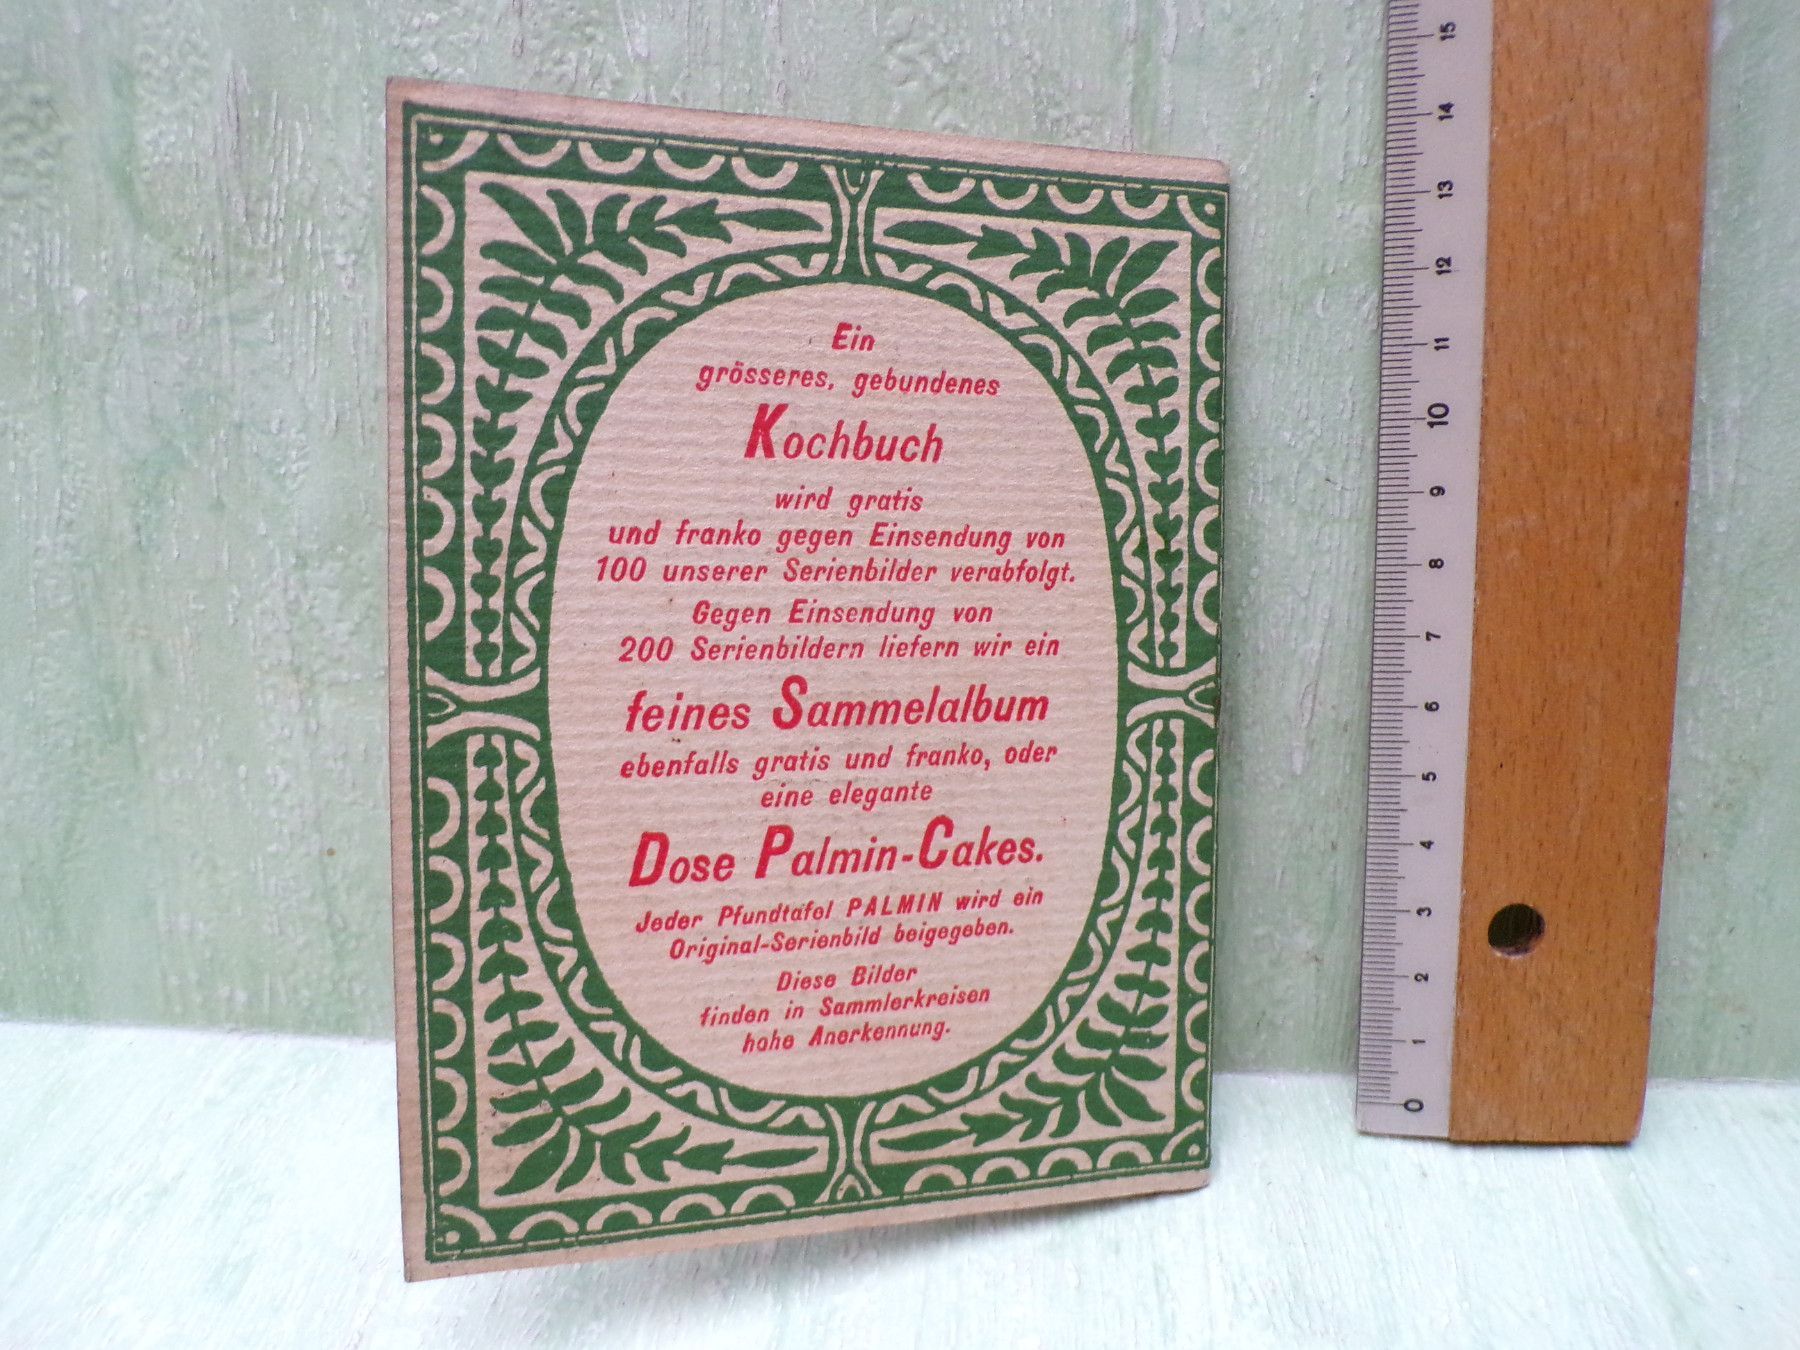 Ein
grösseres, gebundenes
Kochbuch
wird gratis
und franko gegen Einsendung von
100 unserer Serienbilder verabfolgt.
Gegen Einsendung von
200 Serienbildern liefern wir ein
feines Sammelalbum
ebenfalls gratis und franko, oder
eine elegante
Dose Palmin-Cakes.
Jeder Pfundtafel PALMIN wird ein
Original-Serienbild beigegeben.
Diese Bilder
finden in Sammlerkreisen
hohe Anerkennung.
15
14
13
12
11
10
9
8
7
6
5
4
3
2
1
0